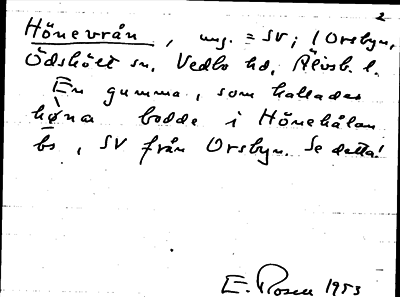 2
Hönevrån, ung. = SV; i Orsbyn,
Ödskölt sn. Vedbo hd, Älvsb. l.
En gumma, som kallades
høna bodde i Hönehålan
bs, SV från Orsbyn. Se detta!
E. Rosen 1953